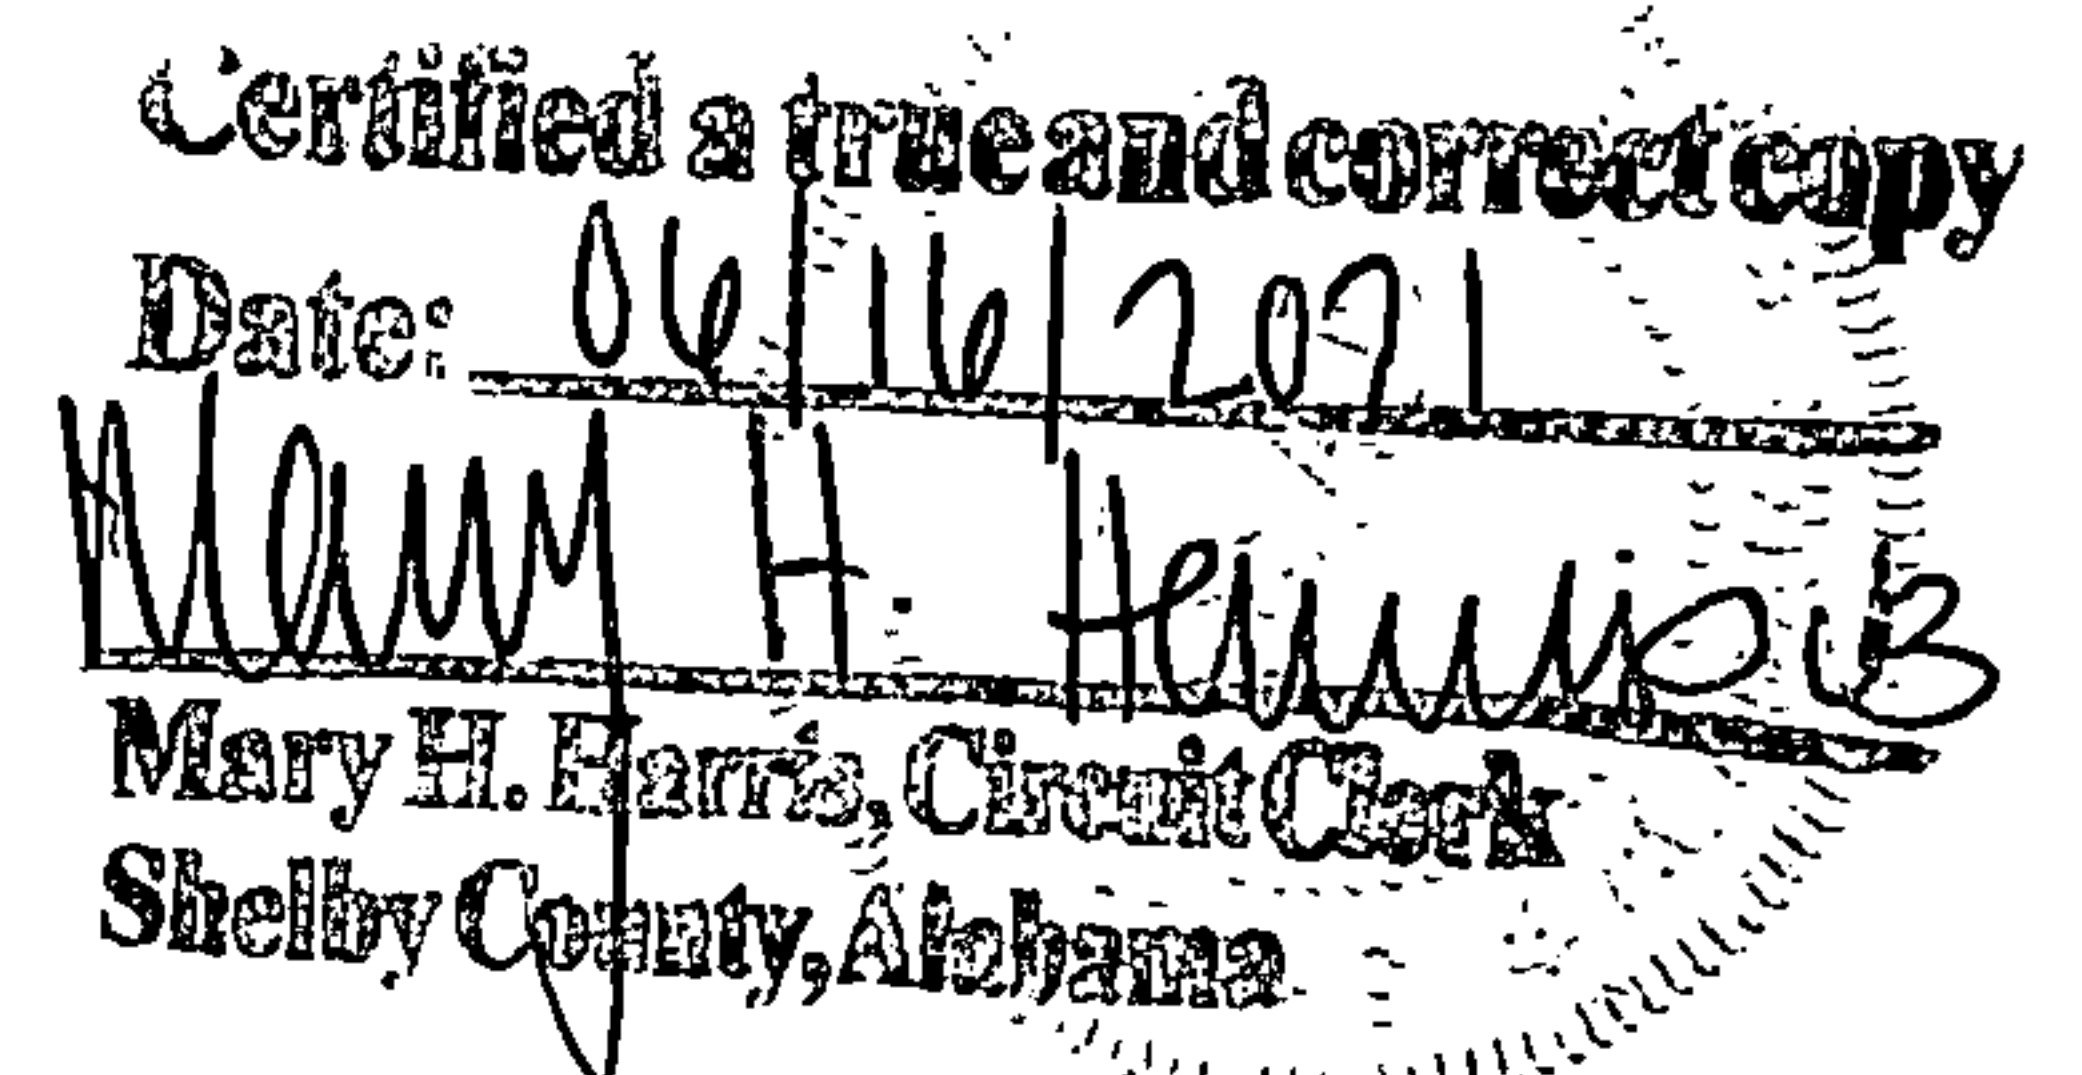 Certified a true and correct copy
Date: 06/16/2021
Mary H. Harris
Mary H. Harris, Circuit Clerk
Shelby County, Alabama